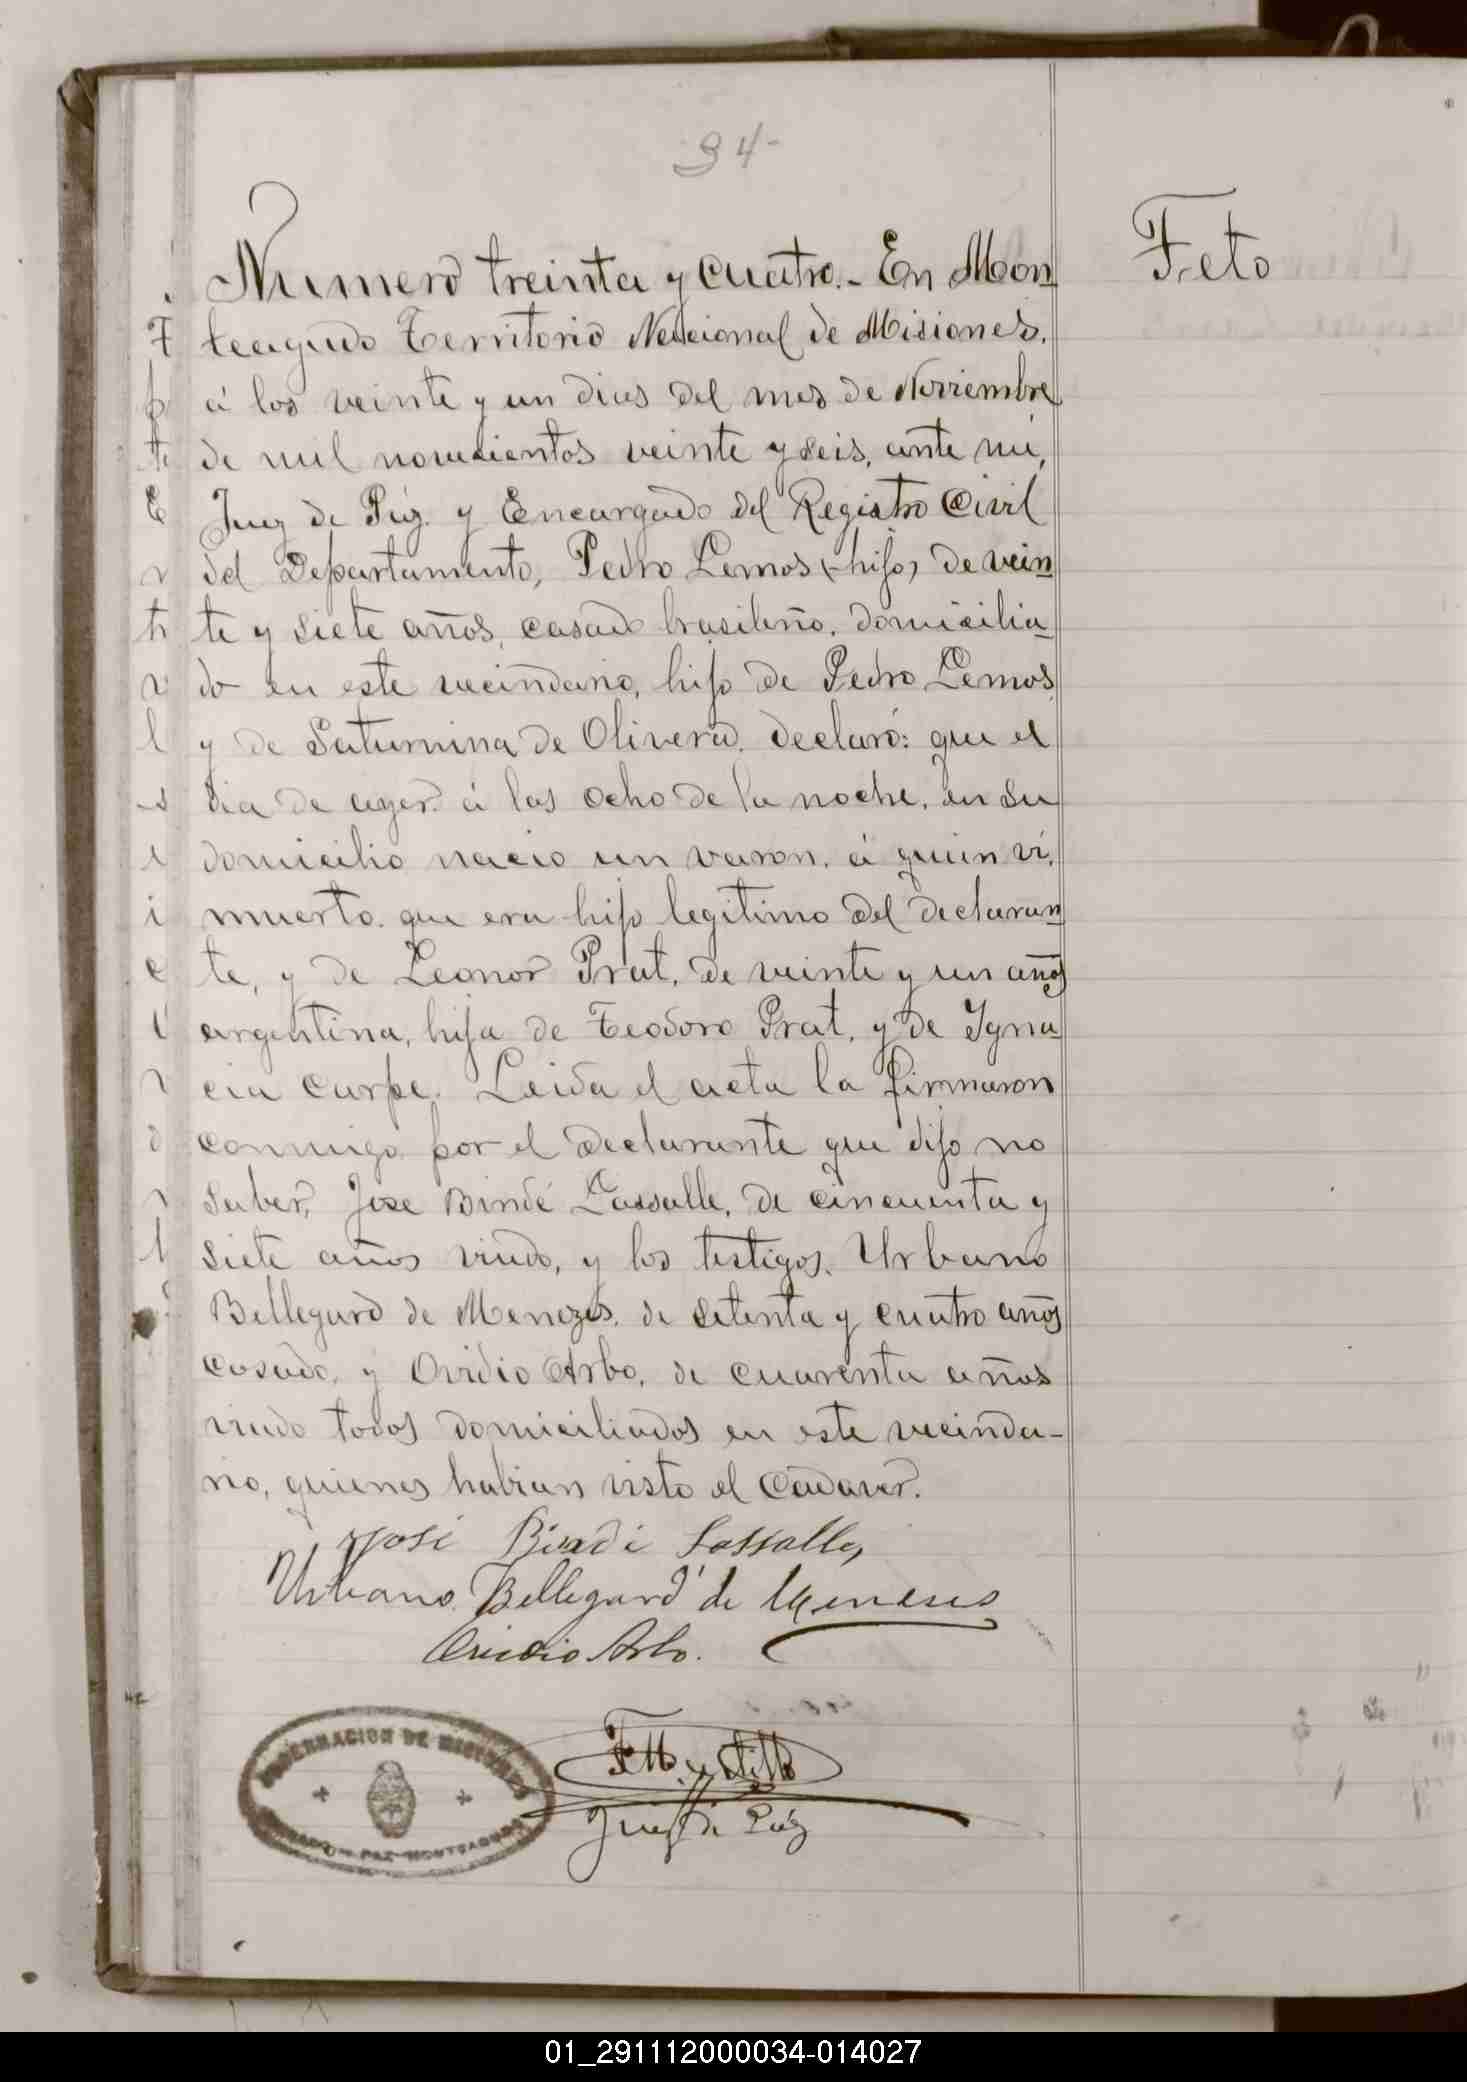 34-
Feto
Numero treinta y cuatro.- En Mon
teagudo Territorio Nacional de Misiones.
á los veinte y un dias del mes de Noviembre
de mil novecientos veinte y seis, ante mi,
Juez de Páz y Encargado del Registro Civil
del Departamento, Pedro Lemos (hijo) de vein
te y siete años, casado brasileño, domicilia
do en este vecindario, hijo de Pedro Lemos
y de Saturnina de Olivera, declaró: que el
dia de ayer á las ocho de la noche, en su
domicilio nació un varon, á quien ví,
muerto, que era hijo legitimo del declaran
te, y de Leonor Prat, de veinte y un años
argentina, hija de Teodoro Prat, y de Igna
cia Carpe. Leida el acta la firmaron
conmigo por el declarante que dijo no
saber, Jose Bindé Lassalle, de cincuenta y
siete años viudo, y los testigos, Urbano
Bellegard de Menezes, de setenta y cuatro años
casado, y Ovidio Arbo, de cuarenta años
viudo todos domiciliados en este vecinda-
rio, quienes habian visto el cadaver.
José Bindé Lassalle,
Urbano Bellegard de Meneses
Ovidio Arbo.
GOBERNACION DE MISIONES
JUZGADO DE PAZ-MONTEAGUDO
Juez de Páz
01_291112000034-014027